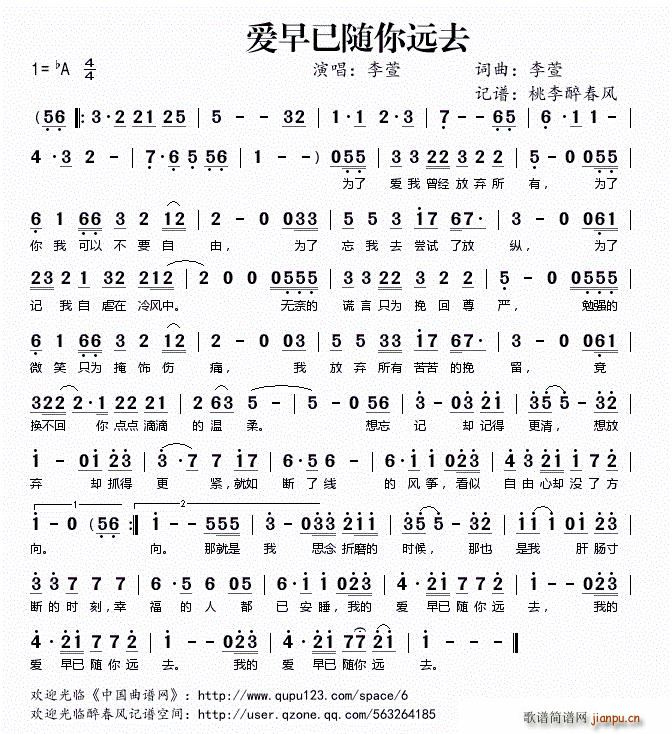 爱早已随你远去
1=♭A 4/4 演唱：李萱 词曲：李萱
记谱：桃李醉春风
(56 ‖: 3·2 21 25 | 5 - - 32 | 1·1 2·3 | 7 - - 65 | 6·1 1 -
4·3 2 - | 7·6 5 56 | 1 - -) 055 | 33 22 322 | 5 - 0 055 |
为了 爱我曾经放弃所 有， 为了
6 1 66 3 2 12 | 2 - 0 033 | 5 5 3 17 67· | 3 - 0 061 |
你我可以不要自 由， 为了 忘我去尝试了放 纵， 为了
23 2 1 32 212 | 2 0 0 0555 | 33 22 3 2 2 | 5 - 0 0555 |
记我自虐在冷风中。 无亲的 谎言只为挽回尊 严， 勉强的
6 1 66 3 2 12 | 2 - 0 03 | 5 5 33 17 67· | 3 - 0 061 |
微笑只为掩饰伤 痛， 我 放弃所有苦苦的挽 留， 竟
322 2·1 22 22 | 2 63 5 - | 5 - 0 56 | 3 - 03 21 | 35 5 - 32 |
换不回 你点点滴滴 的温柔。 想忘 记 却记得 更清，想放
1 - 01 23 | 3·7 7 17 | 6·5 6 - | 6·1 023 | 43 21 17 2 |
弃 却抓得 更 紧，就如 断了线 的风筝，看似 自由心却没了方
1 - 0 (56 :‖ 1 - - 555 | 3 - 033 211 | 35 5 - 32 | 11 1 01 23 |
向。 向。 那就是 我 思念折磨的 时候， 那也 是我 肝肠寸
3 3 7 7 7 | 6·5 6 05 | 6·5 1 023 | 4·21 77 2 | 1 - - 023 |
断的时刻，幸 福的人 都 已安睡，我的 爱 早已随你远 去， 我的
4·21 77 2 | 1 - - 023 | 4·21 77 21 | 1 - - - ‖
爱 早已随你远 去。 我的 爱 早已随你远 去。
欢迎光临《中国曲谱网》：http://www.qupu123.com/space/6
欢迎光临醉春风记谱空间：http://user.qzone.qq.com/563264185
歌谱简谱网 jianpu.cn